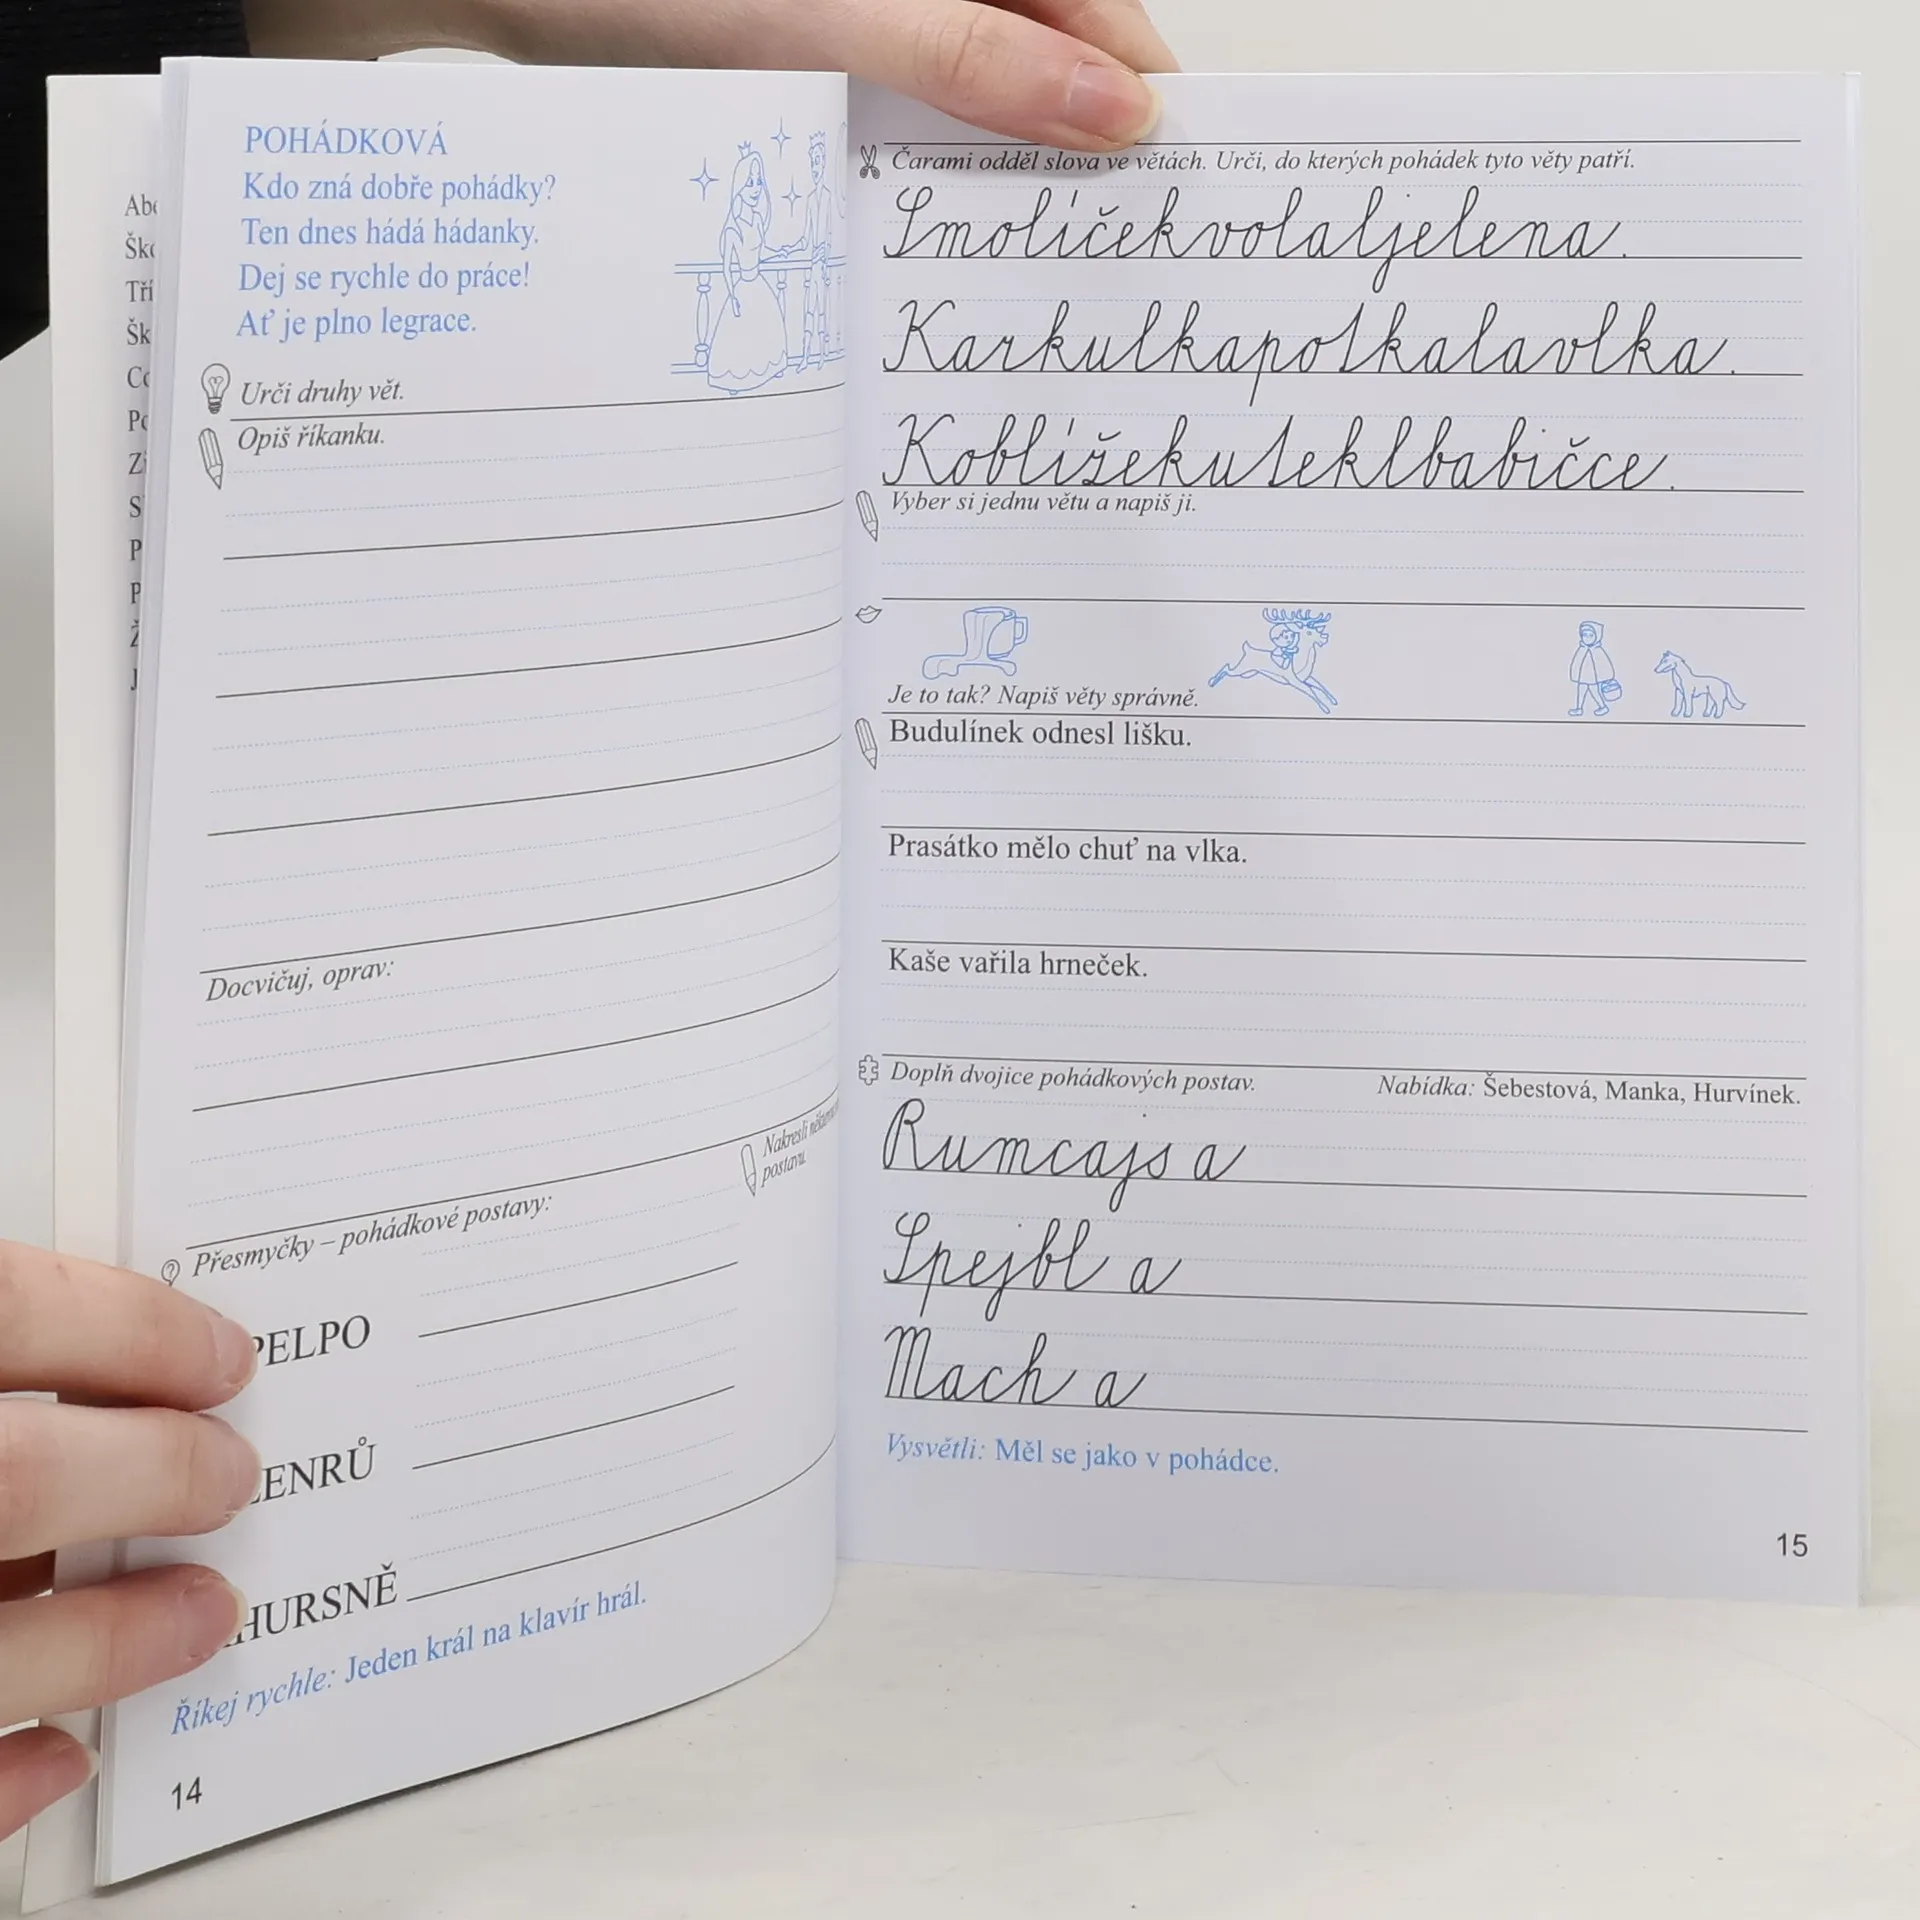 POHÁDKOVÁ
Kdo zná dobře pohádky?
Ten dnes hádá hádanky.
Dej se rychle do práce!
Ať je plno legrace.
Urči druhy vět.
Opiš říkanku.
Docvičuj, oprav:
Nakresli
postavu.
Přesmyčky – pohádkové postavy:
PELPO
ENRŮ
HURSNĚ
Říkej rychle: Jeden král na klavír hrál.
14
Čarami odděl slova ve větách. Urči, do kterých pohádek tyto věty patří.
Smolíčekvolaljelena.
Karkulkapotkalavlka.
Koblížekuteklbabičce.
Vyber si jednu větu a napiš ji.
Je to tak? Napiš věty správně.
Budulínek odnesl lišku.
Prasátko mělo chuť na vlka.
Kaše vařila hrneček.
Doplň dvojice pohádkových postav. Nabídka: Šebestová, Manka, Hurvínek.
Rumcajs a
Spejbl a
Mach a
Vysvětli: Měl se jako v pohádce.
15